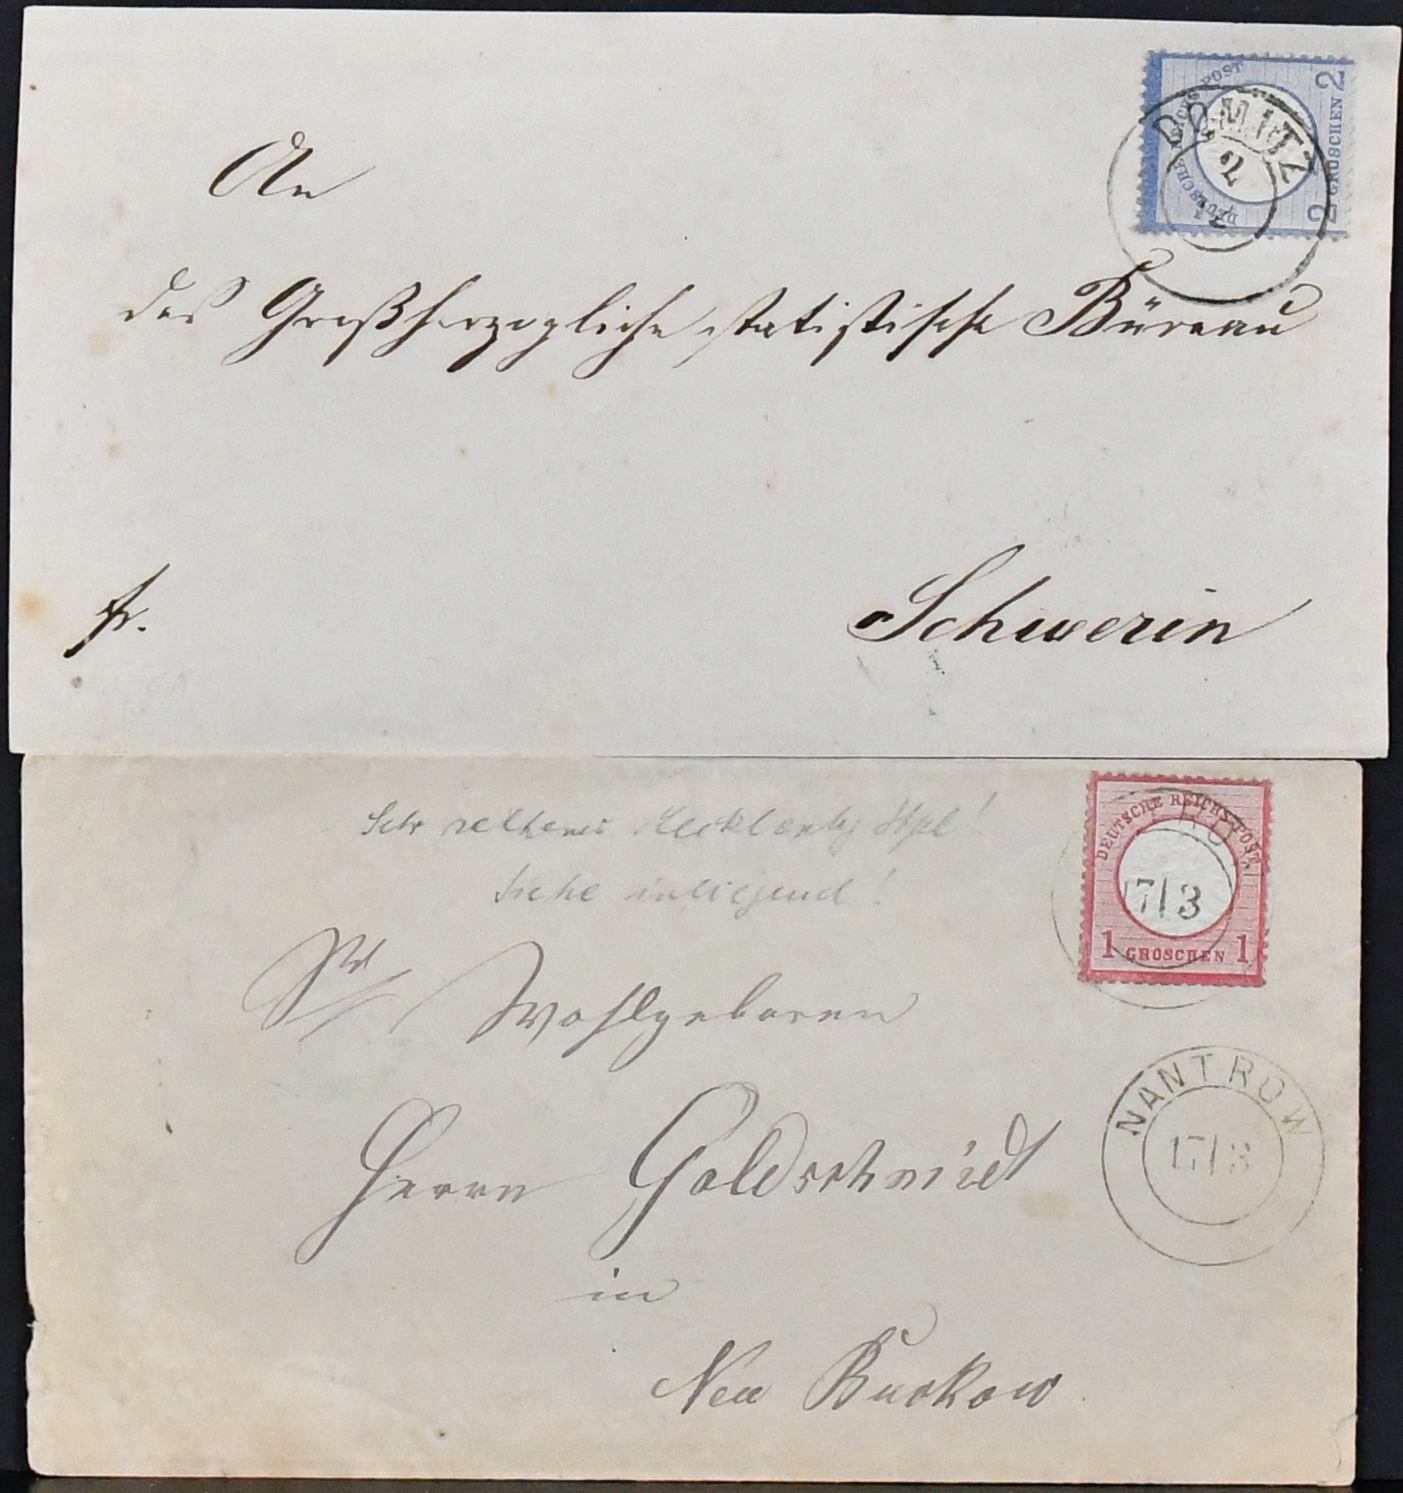 DEUTSCHE REICHS-POST
2 GROSCHEN 2
DÖMITZ
2
An
das Großherzogliche statistische Büreau
fr.
Schwerin
Sehr seltener Mecklenbg Stpl!
Siehe inliegend!
DEUTSCHE REICHS-POST
1 GROSCHEN 1
TROW
17/3
Sr Wohlgeboren
NANTROW
17/3
Herrn Goldschmidt
in
Neu Buckow